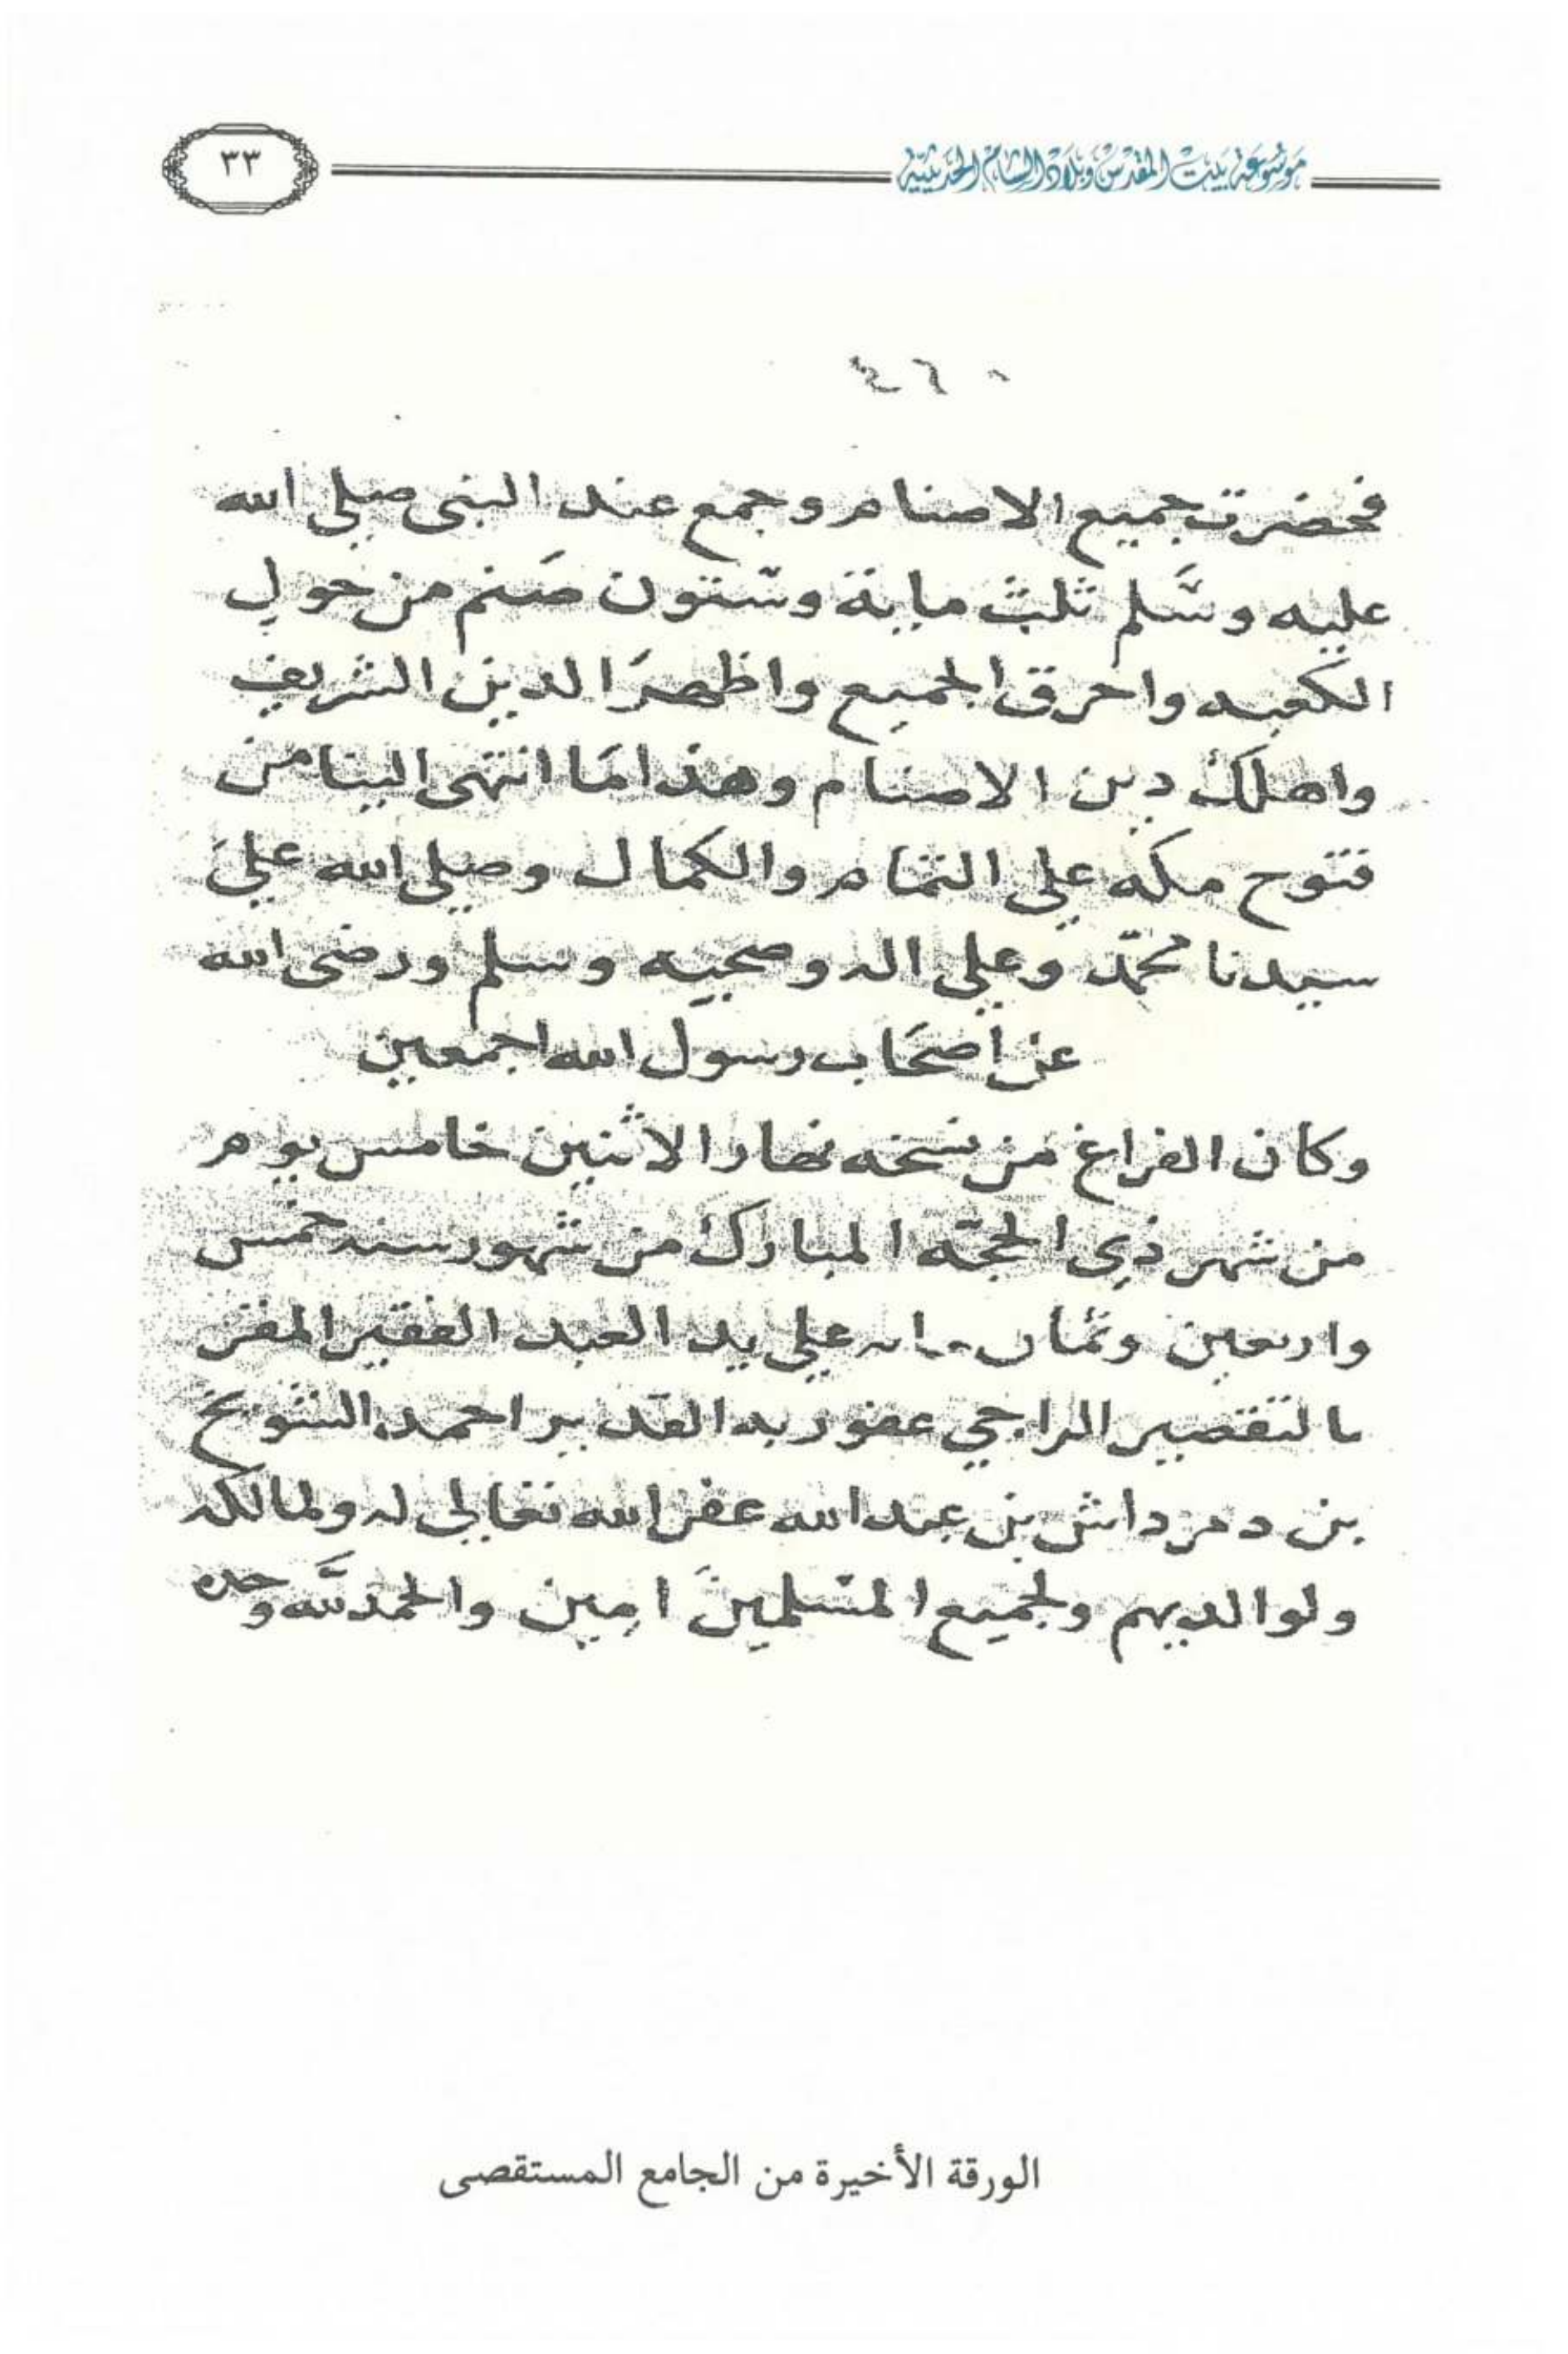 موسوعة بيت المقدس وبلاد الشام الحديثية
٣٣
فحضرت جميع الاصنام وجمع عند النبى صلى الله
عليه وسَّلم ثلث ماية وستون صَنم من حول
الكعبه واحرق الجميع واظهرَ الدين الشريف
واهلك دين الاصنام وهذا مَا انتهى الينا من
فتوح مكه على التمام والكمال وصلى الله على
سيدنا محمّد وعلى اله وصحبه وسلم ورضى الله
عن اصحَاب رسول الله اجمعين
وكان الفراغ من نسخه نهار الاثنين خامس يوم
من شهر ذي الحجّه المبارك من شهور سنه خمس
واربعين وثمان مايه على يد العبد الفقير المقر
بالتقصير الراجي عفو ربه القدير احمد
بن دمرداش بن عبد الله غفر الله تعالى له ولمالكه
ولوالديهم ولجميع المسلمينَ امين والحمد لله وحده
الورقة الأخيرة من الجامع المستقصى